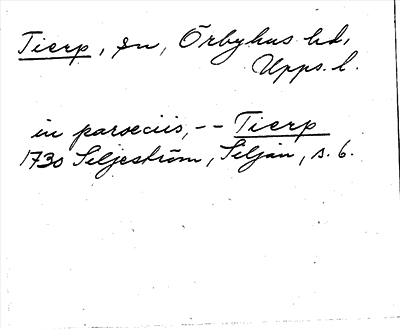 Tierp, sn, Örbyhus hd,
Upps. l.
in paroeciis, -- Tierp
1730 Siljeström, Siljan, s. 6.